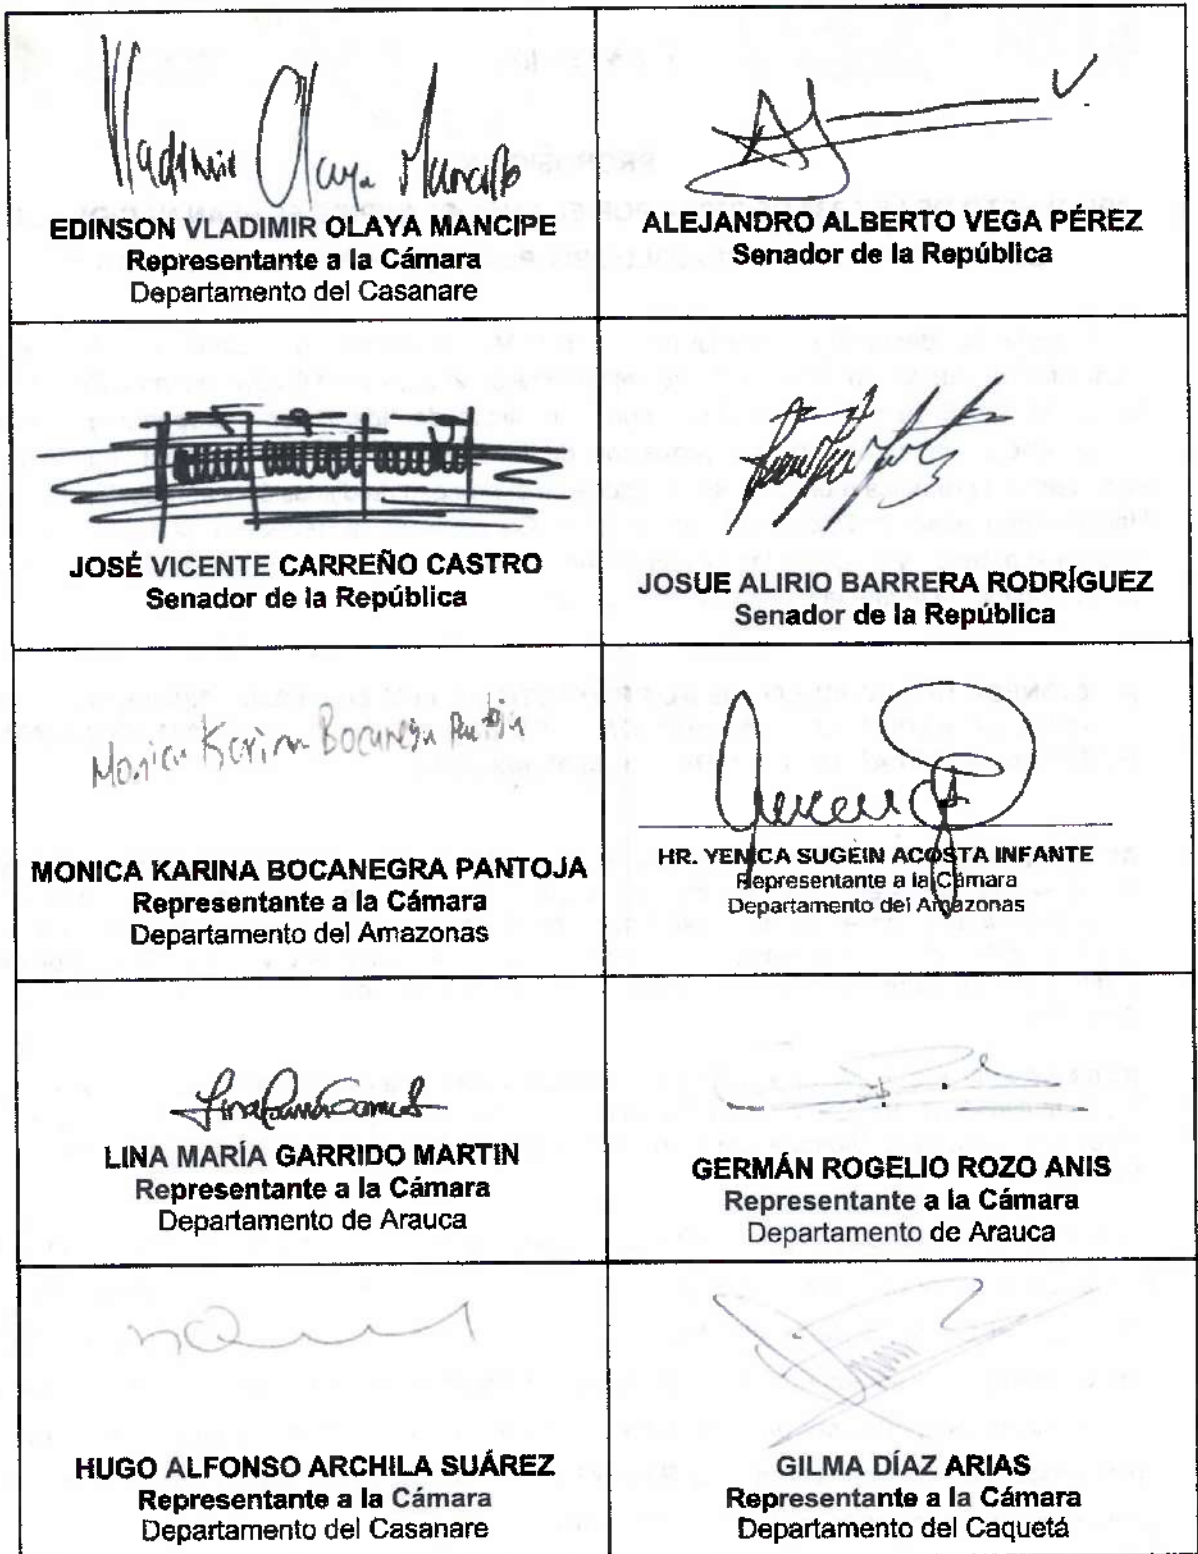 Vladimir Olaya Mancipe
EDINSON VLADIMIR OLAYA MANCIPE
Representante a la Cámara
Departamento del Casanare
ALEJANDRO ALBERTO VEGA PÉREZ
Senador de la República
JOSÉ VICENTE CARREÑO CASTRO
Senador de la República
JOSUE ALIRIO BARRERA RODRÍGUEZ
Senador de la República
Monica Karina Bocanegra
MONICA KARINA BOCANEGRA PANTOJA
Representante a la Cámara
Departamento del Amazonas
HR. YENICA SUGEIN ACOSTA INFANTE
Representante a la Cámara
Departamento del Amazonas
LINA MARÍA GARRIDO MARTIN
Representante a la Cámara
Departamento de Arauca
GERMÁN ROGELIO ROZO ANIS
Representante a la Cámara
Departamento de Arauca
HUGO ALFONSO ARCHILA SUÁREZ
Representante a la Cámara
Departamento del Casanare
GILMA DÍAZ ARIAS
Representante a la Cámara
Departamento del Caquetá